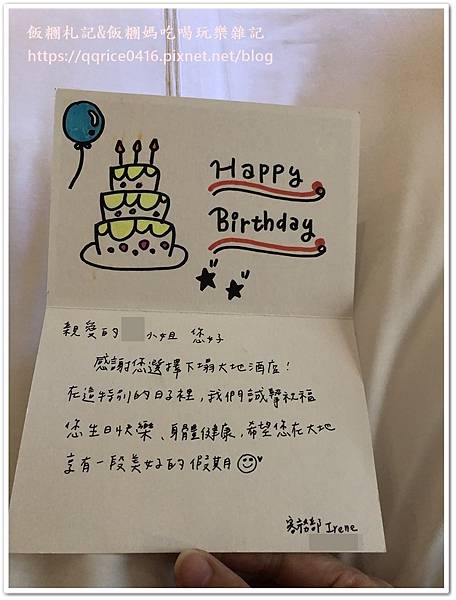 飯糰札記&飯糰媽吃喝玩樂雜記
https://qqrice0416.pixnet.net/blog
Happy
Birthday
親愛的 小姐 您好
感謝您選擇下塌大地酒店!
在這特別的日子裡,我們誠摯祝福
您生日快樂、身體健康,希望您在大地
享有一段美好的假期
客務部 Irene